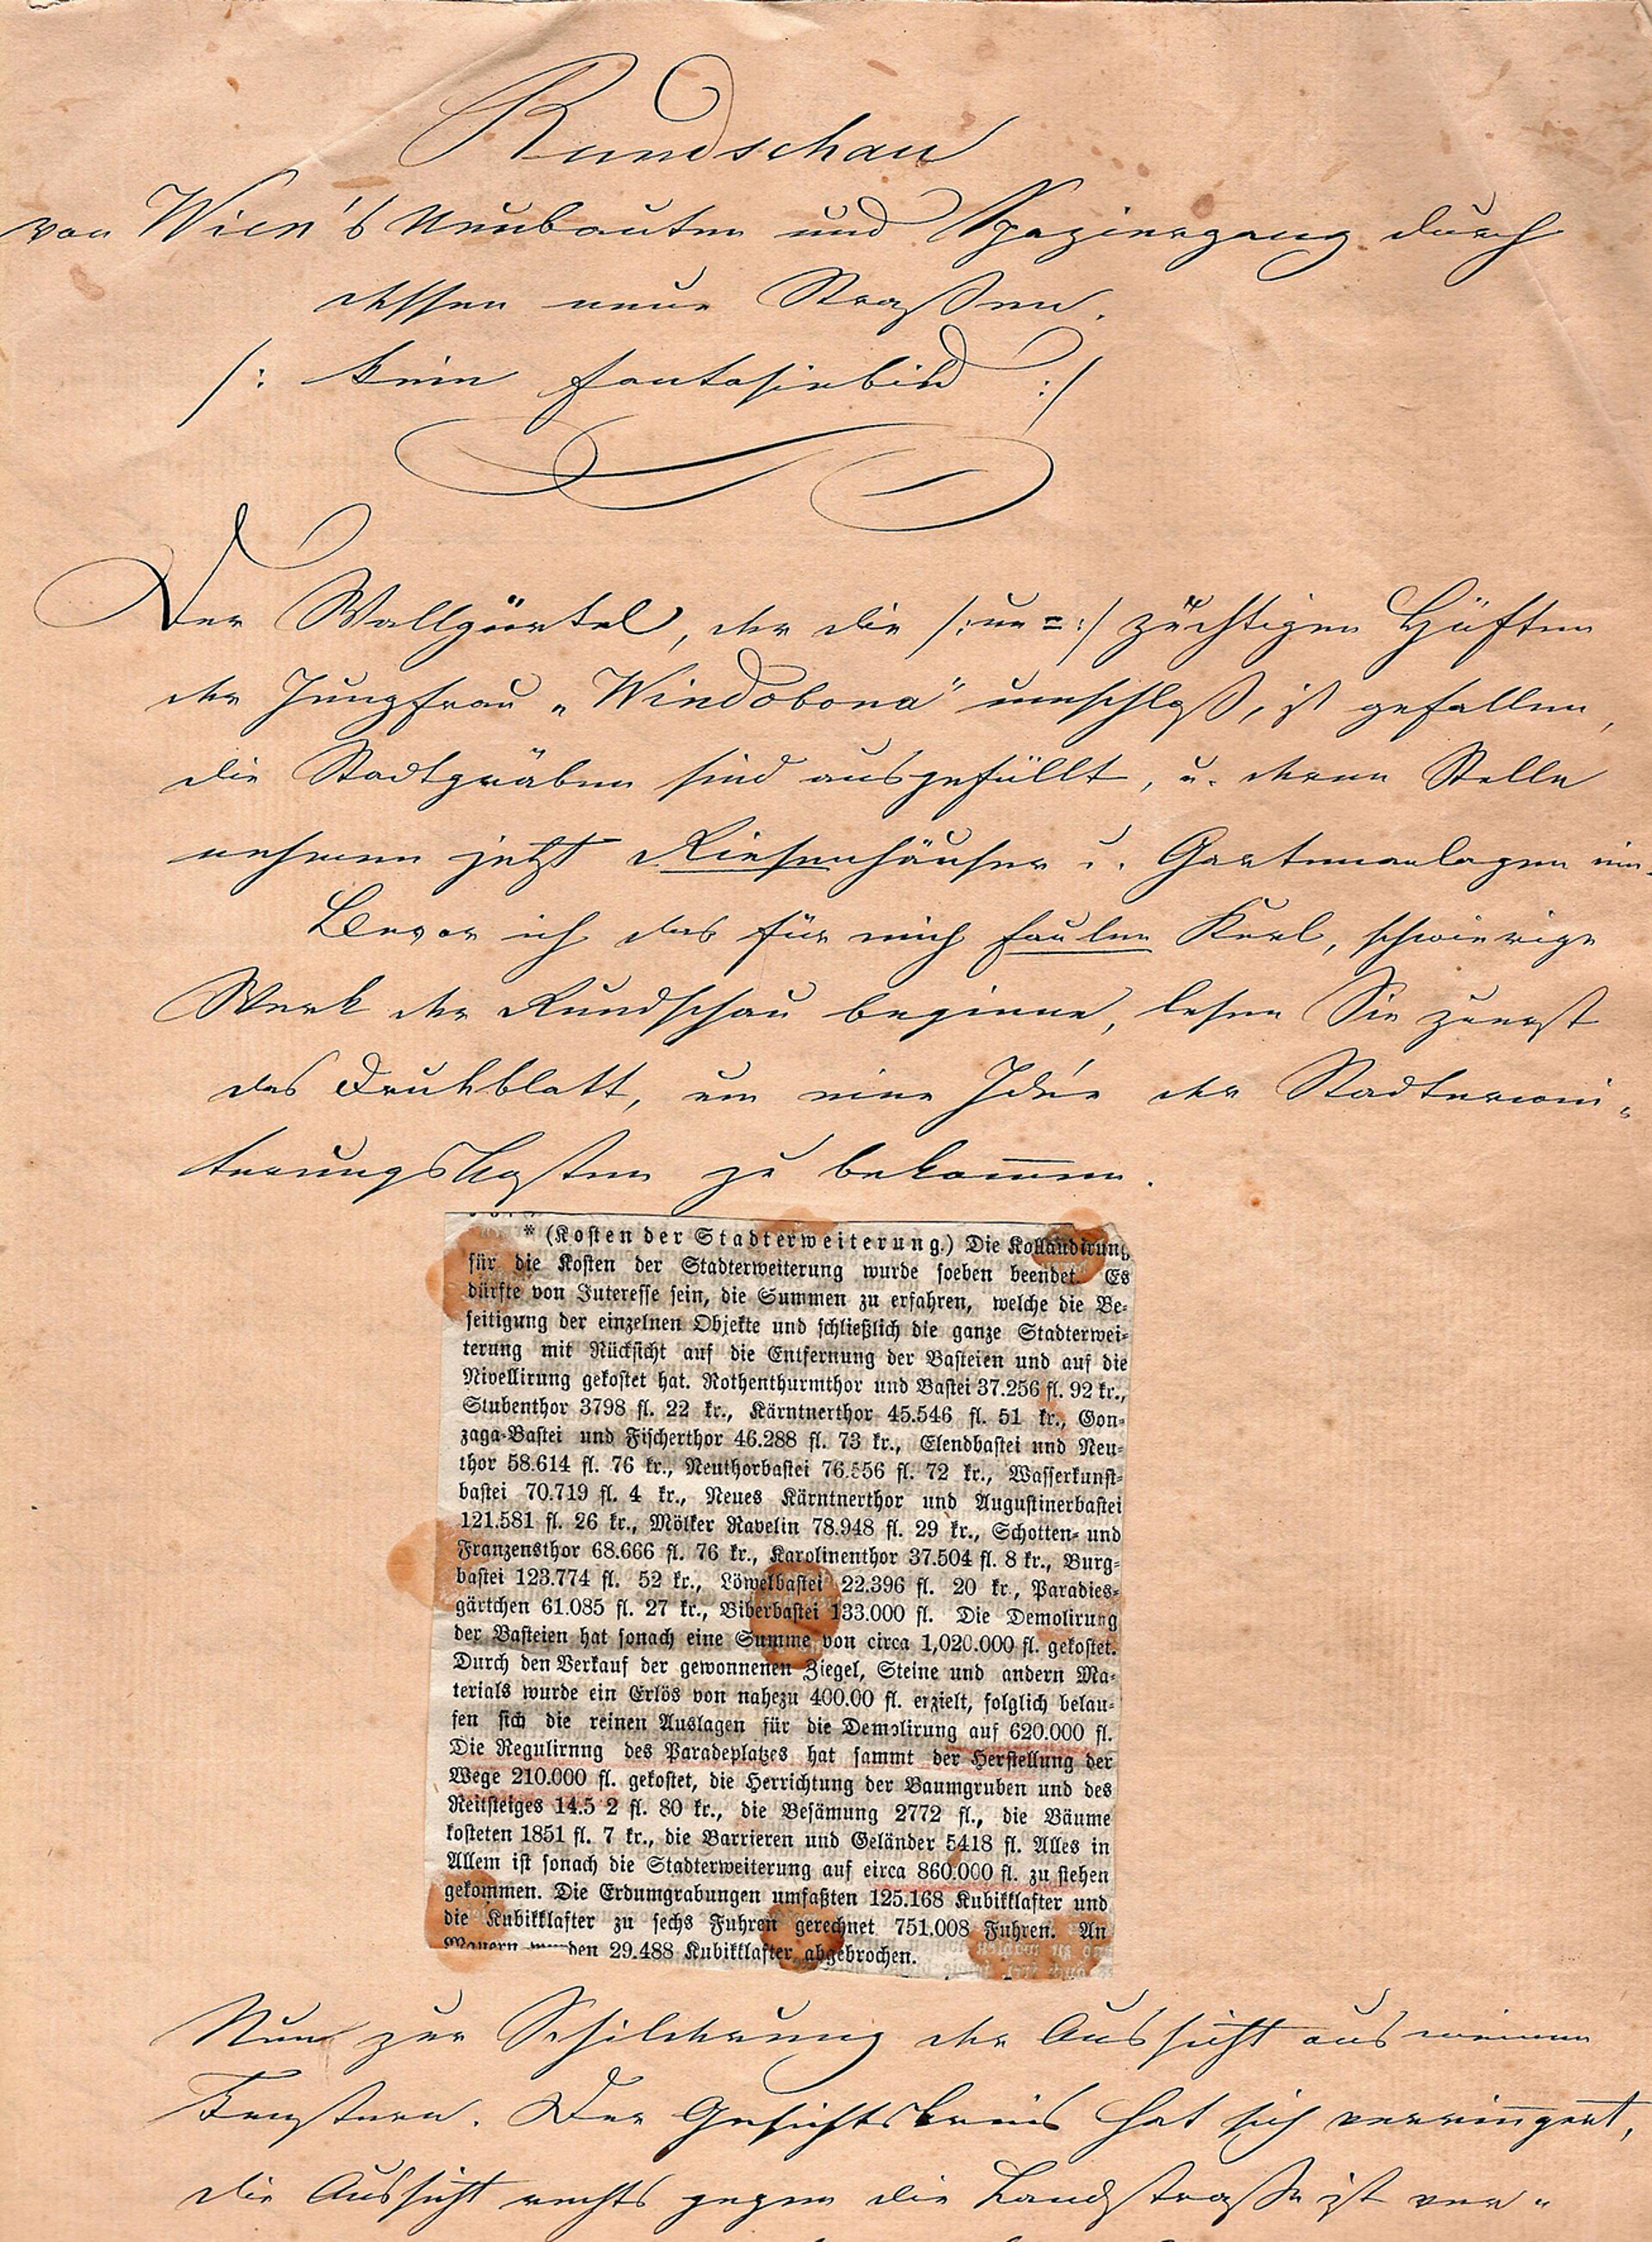 Rundschau
von Wien's Neubauten und Spaziergang durch
dessen neue Straßen.
/: kein Fantasiebild :/
Der Wallgürtel, der die /: un= :/ züchtigen Hüften
der Jungfrau „Windobona" umschloß, ist gefallen,
die Stadtgräben sind ausgefüllt, u. deren Stelle
nehmen jetzt Riesenhäuser u. Gartenanlagen ein.
Bevor ich das für mich faulen Kerl, schwierige
Werk der Rundschau beginne, lesen Sie zuerst
das Druckblatt, um eine Idée der Stadterwei-
terungskosten zu bekommen.
* (Kosten der Stadterweiterung.) Die Kollaudirung
für die Kosten der Stadterweiterung wurde soeben beendet. Es
dürfte von Interesse sein, die Summen zu erfahren, welche die Be-
seitigung der einzelnen Objekte und schließlich die ganze Stadterwei-
terung mit Rücksicht auf die Entfernung der Basteien und auf die
Nivellirung gekostet hat. Rothenthurmthor und Bastei 37.256 fl. 92 kr.,
Stubenthor 3798 fl. 22 kr., Kärntnerthor 45.546 fl. 51 kr., Gon-
zaga-Bastei und Fischerthor 46.288 fl. 73 kr., Elendbastei und Neu-
thor 58.614 fl. 76 kr., Neuthorbastei 76.556 fl. 72 kr., Wasserkunst-
bastei 70.719 fl. 4 kr., Neues Kärntnerthor und Augustinerbastei
121.581 fl. 26 kr., Mölker Ravelin 78.948 fl. 29 kr., Schotten- und
Franzensthor 68.666 fl. 76 kr., Karolinenthor 37.504 fl. 8 kr., Burg-
bastei 123.774 fl. 52 kr., Löwelbastei 22.396 fl. 20 kr., Paradies-
gärtchen 61.085 fl. 27 kr., Biberbastei 133.000 fl. Die Demolirung
der Basteien hat sonach eine Summe von circa 1,020.000 fl. gekostet.
Durch den Verkauf der gewonnenen Ziegel, Steine und andern Ma-
terials wurde ein Erlös von nahezu 400.00 fl. erzielt, folglich belau-
fen sich die reinen Auslagen für die Demolirung auf 620.000 fl.
Die Regulirnng des Paradeplatzes hat sammt der Herstellung der
Wege 210.000 fl. gekostet, die Herrichtung der Baumgruben und des
Reitsteiges 14.5 2 fl. 80 kr., die Besämung 2772 fl., die Bäume
kosteten 1851 fl. 7 kr., die Barrieren und Geländer 5418 fl. Alles in
Allem ist sonach die Stadterweiterung auf circa 860.000 fl. zu stehen
gekommen. Die Erdumgrabungen umfaßten 125.168 Kubikklafter und
die Kubikklafter zu sechs Fuhren gerechnet 751.008 Fuhren. An
Mauern wurden 29.488 Kubikklafter abgebrochen.
Nun zur Schilderung der Aussicht aus meinen
Fenstern. Der Gesichtskreis hat sich verringert,
die Aussicht rechts gegen die Landstraße ist ver-